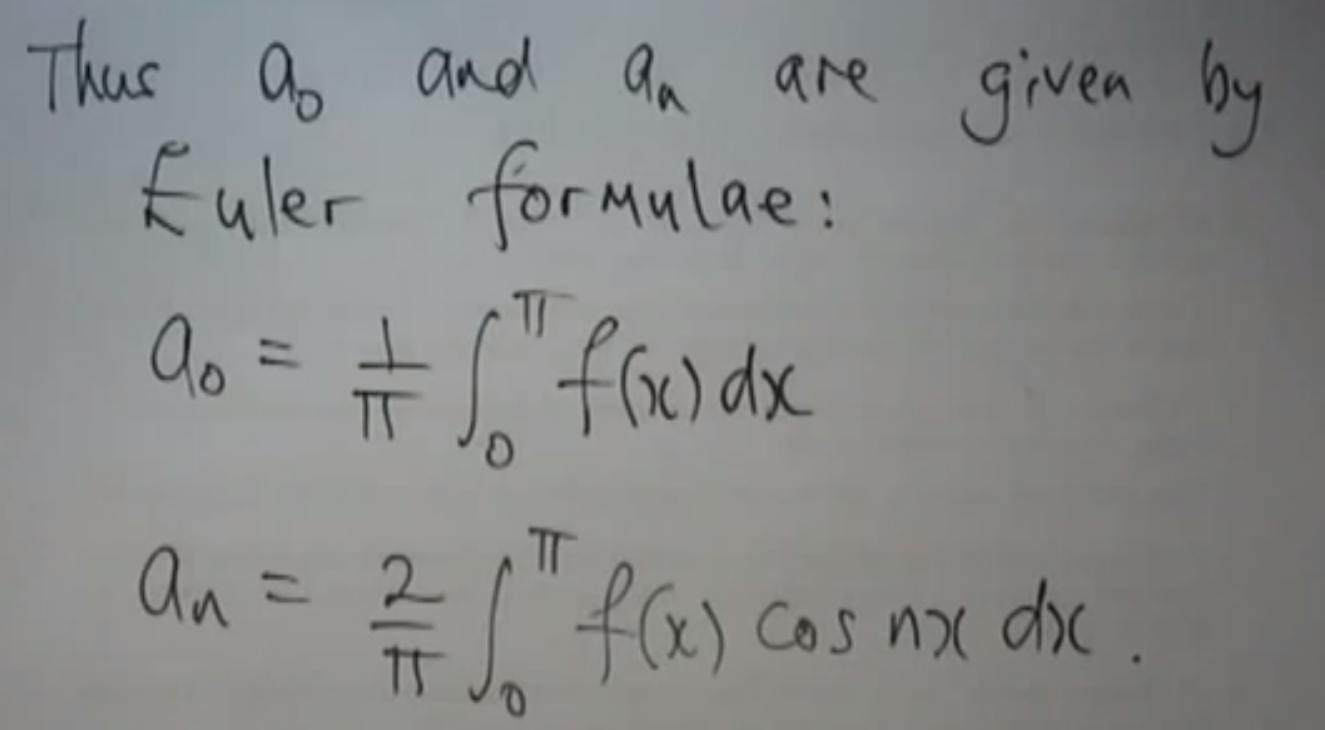 Thus a₀ and aₙ are given by
Euler formulae:
a₀ = 1/π ∫₀^π f(x) dx
aₙ = 2/π ∫₀^π f(x) cos nx dx.